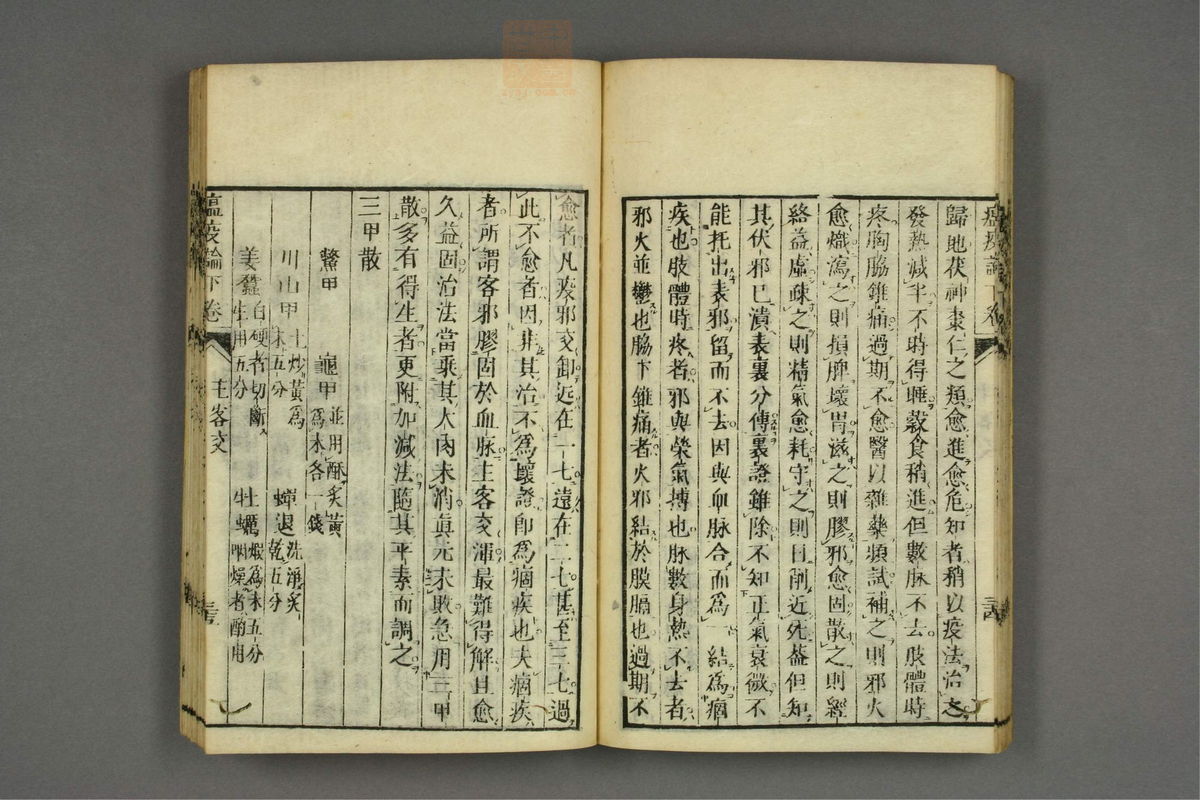 歸地茯神棗仁之類愈進愈危知者稍以疫法治之
發熱減半不時得睡穀食稍進但數脉不去肢體時
疼胸脇錐痛過期不愈醫以雜藥頻試補之則邪火
愈熾瀉之則損脾壞胃滋之則膠邪愈固散之則經
絡益虛疎之則精氣愈耗守之則日削近死葢但知
其伏邪已潰表裏分傳裏證雖除不知正氣衰微不
能托出表邪留而不去因與血脉合而爲一結爲痼
疾也肢體時疼者邪與榮氣搏也脉數身熱不去者
邪火並鬱也脇下錐痛者火邪結於膜膈也過期不
愈者凡疫邪交卸近在一七遠在二七甚至三七過
此不愈者因非其治不爲壞證即爲痼疾也夫痼疾
者所謂客邪膠固於血脉主客交渾最難得解且愈
久益固治法當乘其大肉未消眞元未敗急用三甲
散多有得生者更附加減法隨其平素而調之
三甲散
鱉甲 龜甲並用酥炙黃爲末各一錢
川山甲土炒黃爲末五分 蟬退洗淨炙乾五分
姜蠶白硬者切斷生用五分 牡蠣煆爲末五分咽燥者酌用
瘟疫論下卷 主客交